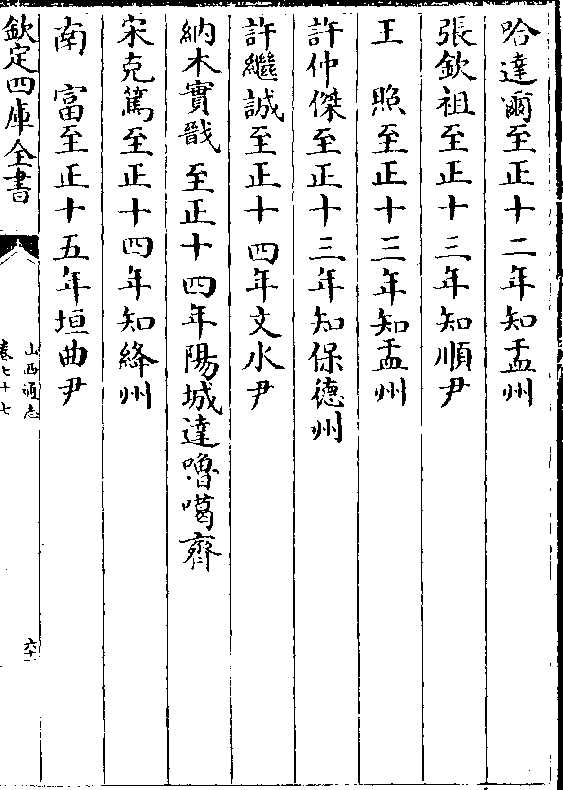 哈達爾至正十二年知盂州
張欽祖至正十三年知順尹
王　照至正十三年知盂州
許仲傑至正十三年知保德州
許繼誠至正十四年文水尹
納木實戩至正十四年陽城達嚕噶齊
宋克篤至正十四年知絳州
南　富至正十五年垣曲尹
欽定四庫全書
山西通志
卷七十七